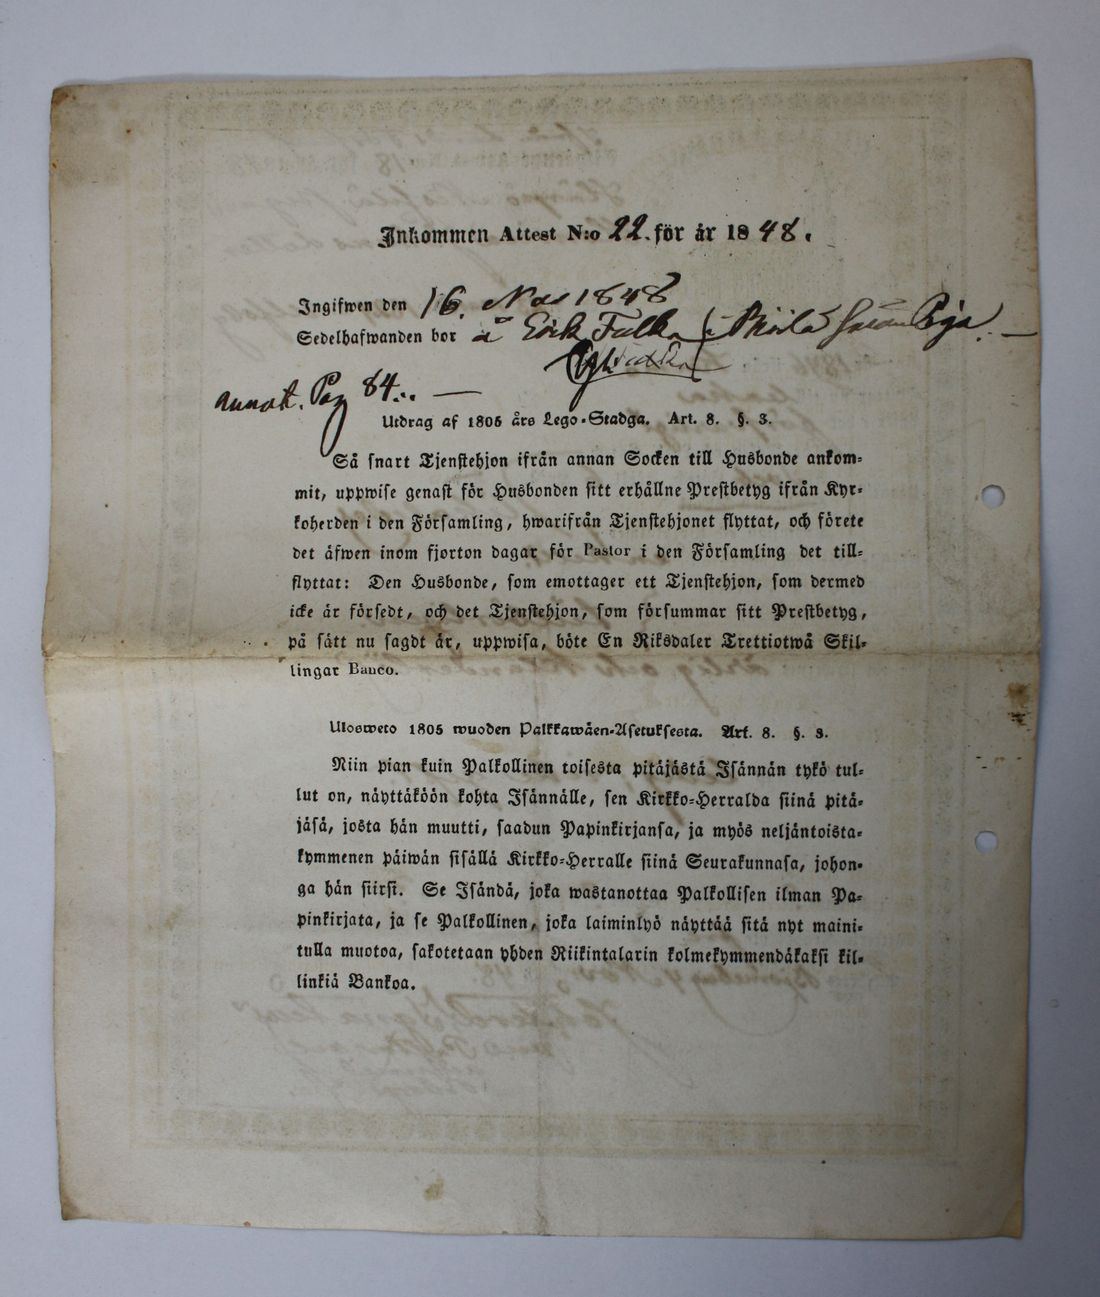 Inkommen Attest N:o 22. för år 1848.
Ingifwen den 16. Nov 1848
Sedelhafwanden bor å Erik Falk
annot. Pag 84.
Utdrag af 1805 års Lego-Stadga. Art. 8. §. 3.
Så snart Tjenstehjon ifrån annan Socken till Husbonde ankom-
mit, uppwise genast för Husbonden sitt erhållne Prestbetyg ifrån Kyr-
koherden i den Församling, hwarifrån Tjenstehjonet flyttat, och förete
det äfwen inom fjorton dagar för Pastor i den Församling det till-
flyttat: Den Husbonde, som emottager ett Tjenstehjon, som dermed
icke är försedt, och det Tjenstehjon, som försummar sitt Prestbetyg,
på sätt nu sagdt är, uppwisa, böte En Riksdaler Trettiotwå Skil-
lingar Banco.
Ulosweto 1805 wuoden Palkkawäen-Asetuksesta. Art. 8. §. 3.
Niin pian kuin Palkollinen toisesta pitäjästä Isännän tykö tul-
lut on, näyttäköön kohta Isännälle, sen Kirkko-Herralda siinä pitä-
jäsä, josta hän muutti, saadun Papinkirjansa, ja myös neljäntoista-
kymmenen päiwän sisällä Kirkko-Herralle siinä Seurakunnasa, johon-
ga hän siirsi. Se Isändä, joka wastanottaa Palkollisen ilman Pa-
pinkirjata, ja se Palkollinen, joka laiminlyö näyttää sitä nyt maini-
tulla muotoa, sakotetaan yhden Riikintalarin kolmekymmendäkaksi kil-
linkiä Bankoa.